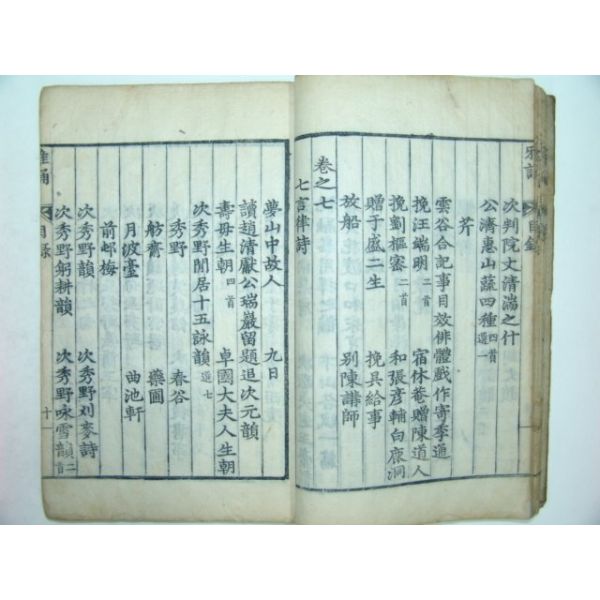 雅誦 目錄
次判院丈清湍之什
公濟惠山蔬四種 四首選一
芹
雲谷合記事目效俳體戲作寄季通
挽汪端明 二首 宿休菴贈陳道人
挽劉樞密 二首 和張彥輔白鹿洞
贈于盛二生 挽吳給事
放船 別陳講師
卷之七
七言律詩
夢山中故人 九日
讀趙清獻公瑞巖留題追次元韻
壽母生朝 四首 卓國大夫人生朝
次秀野閒居十五詠韻 選七
秀野 春谷
舫齋 藥圃
月波臺 曲池軒
前邨梅
次秀野韻 次秀野刈麥詩
次秀野躬耕韻 次秀野咏雪韻 二首
雅誦 目錄 十一